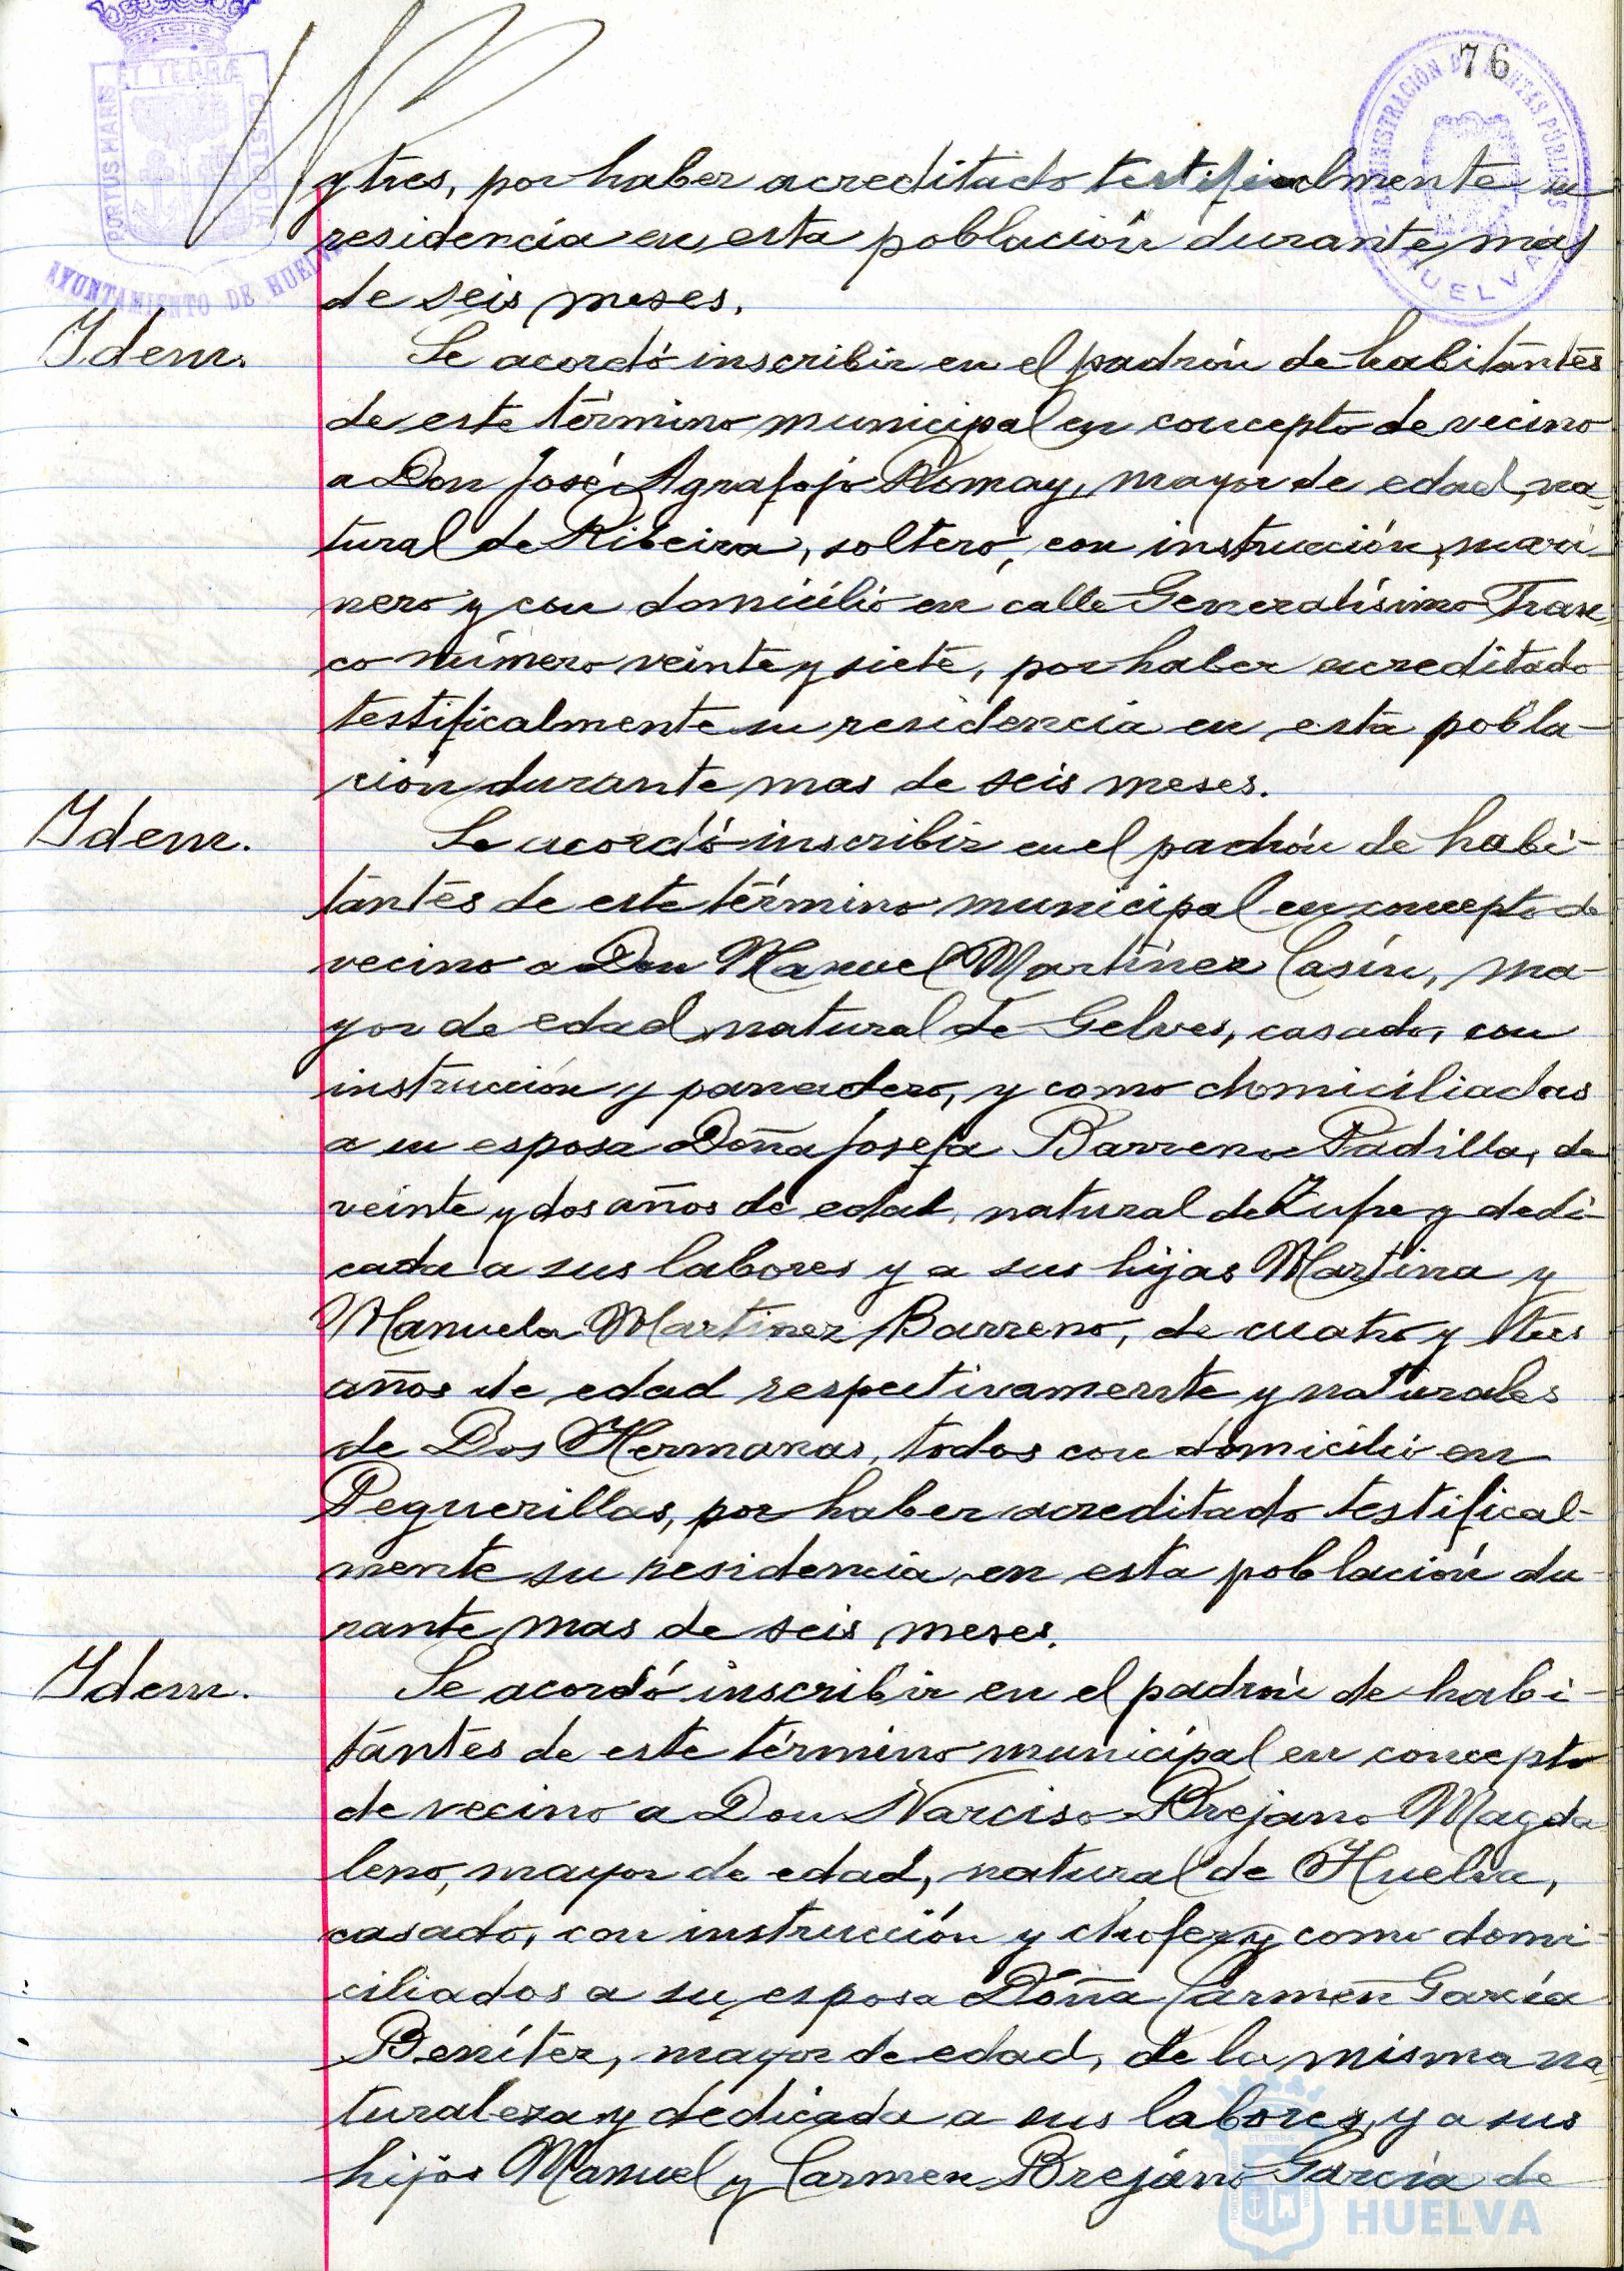 76
PORTUS MARIS ET TERRÆ CUSTODIA
AYUNTAMIENTO DE HUELVA
ADMINISTRACIÓN DE RENTAS PÚBLICAS
HUELVA
y tres, por haber acreditado testificalmente su
residencia en esta población durante mas
de seis meses.
Idem.
Se acordó inscribir en el padrón de habitantes
de este término municipal en concepto de vecino
a Don José Agrafojo Romay, mayor de edad, na-
tural de Ribeira, soltero, con instrucción, mari-
nero y con domicilio en calle Generalísimo Fran
co número veinte y siete, por haber acreditado
testificalmente su residencia en esta pobla-
ción durante mas de seis meses.
Idem.
Se acordó inscribir en el padrón de habi-
tantes de este término municipal en concepto de
vecino a Don Manuel Martínez Casín, ma-
yor de edad, natural de Gelves, casado, con
instrucción y panadero, y como domiciliadas
a su esposa Doña Josefa Barreno Padilla, de
veinte y dos años de edad, natural de Zufre y dedi-
cada a sus labores y a sus hijas Martina y
Manuela Martinez Barreno, de cuatro y tres
años de edad respectivamente y naturales
de Dos Hermanas, todos con domicilio en
Peguerillas, por haber acreditado testifical-
mente su residencia en esta población du-
rante mas de seis meses.
Idem.
Se acordó inscribir en el padrón de habi-
tantes de este término municipal en concepto
de vecino a Don Narciso Brejano Magda
leno, mayor de edad, natural de Huelva,
casado, con instrucción y chofer y como domi-
ciliados a su esposa Doña Carmen García
Benítez, mayor de edad, de la misma na
turaleza y dedicada a sus labores, y a sus
hijos Manuel y Carmen Brejano García de
HUELVA